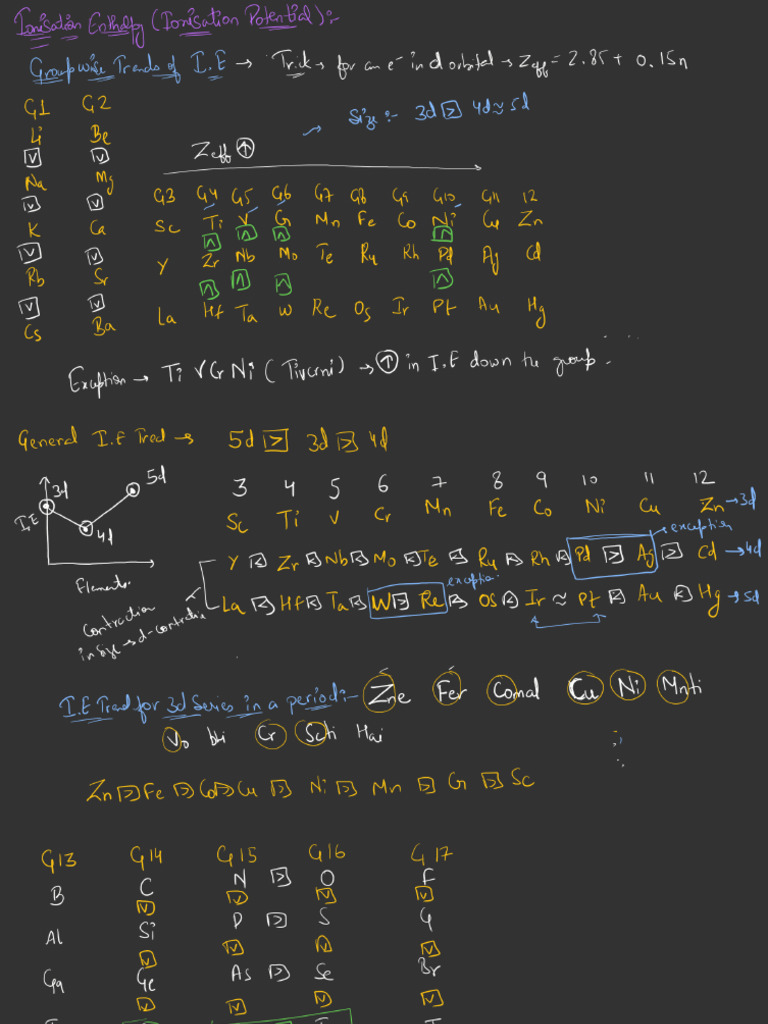 Ionisation Enthalpy (Ionisation Potential):-
Groupwise Trends of I.E → Trick → for an e⁻ in d orbital → Zeff = 2.85 + 0.15n
G1 G2
Size:- 3d > 4d ≈ 5d
Li Be
Zeff ↑
∨ ∨
Na Mg
G3 G4 G5 G6 G7 G8 G9 G10 G11 12
∨ ∨
K Ca Sc Ti V Cr Mn Fe Co Ni Cu Zn
∧ ∧ ∧ ∧
∨ ∨ Y Zr Nb Mo Te Ru Rh Pd Ag Cd
Rb Sr
∧ ∧ ∧ ∧
∨ ∨
Cs Ba La Hf Ta W Re Os Ir Pt Au Hg
Exception → Ti V Cr Ni (Tivcrni) → ↑ in I.E down the group.
General I.E Tred → 5d > 3d > 4d
3d 5d
I.E
4d
Elements
3 4 5 6 7 8 9 10 11 12
Sc Ti V Cr Mn Fe Co Ni Cu Zn → 3d
exception
Y < Zr < Nb < Mo < Te < Ru < Rh < Pd > Ag > Cd → 4d
exception
La < Hf < Ta < W > Re < Os < Ir ≈ Pt < Au < Hg → 5d
Contraction
in Size → d-contractio
I.E Trad for 3d Series in a period:- Zne Fer Comal Cu Ni Mnti
Vo bhi Cr Scti Hai
Zn > Fe > Co > Cu > Ni > Mn > Cr > Sc
G13 G14 G15 G16 G17
B C N > O F
∨ ∨ ∨ ∨
Al Si P > S Cl
∨ ∨ ∨ ∨
Ga Ge As > Se Br
∨ ∨ ∨ ∨